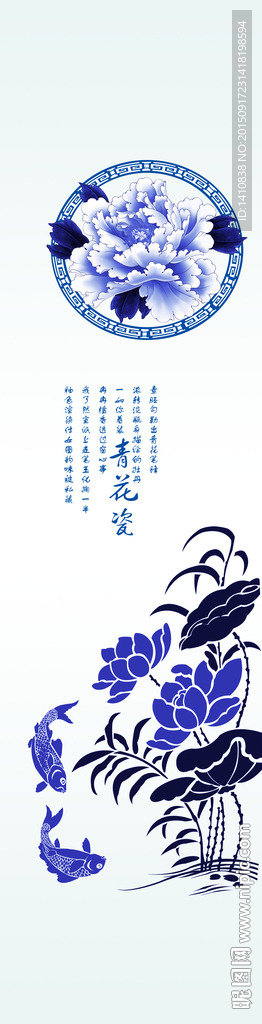 ID:1410838 NO:20150917231418198594
素胚勾勒出青花笔锋
浓转淡瓶身描绘的牡丹
一如你初妆
冉冉檀香透过窗心事
我了然宣纸上走笔至此搁一半
釉色渲染仕女图韵味被私藏
青花瓷
昵图网 www.nipic.com